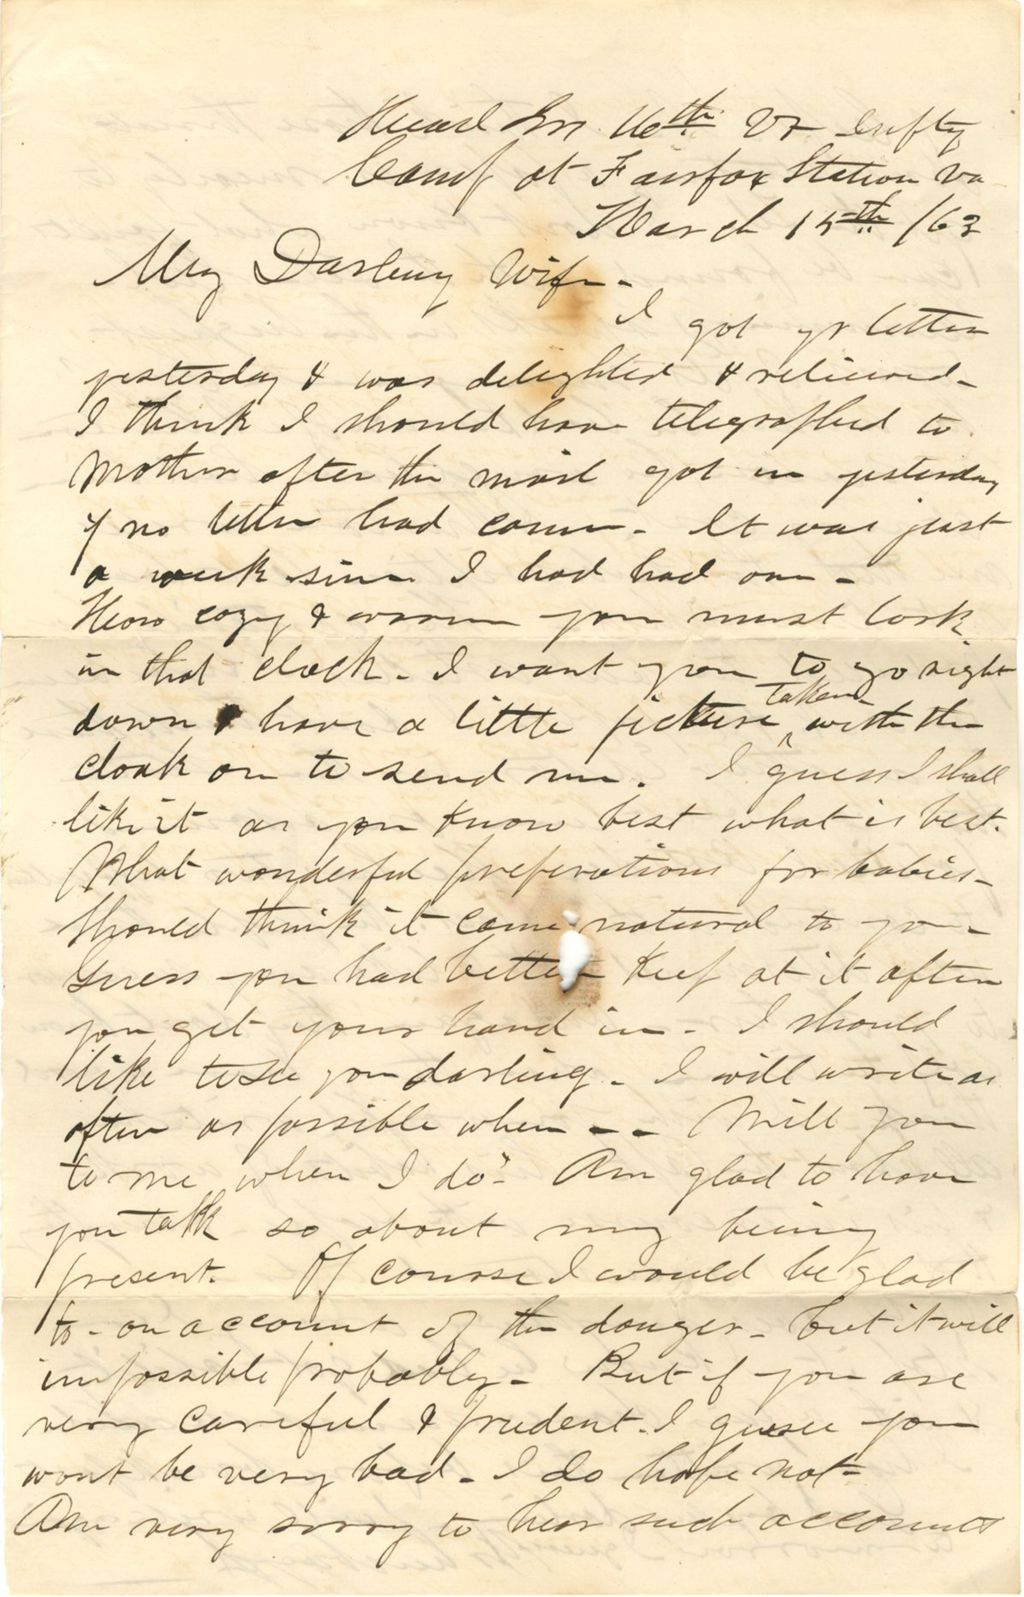 Head Qrs 16th Vt Infty
Camp at Fairfax Station Va
March 15th /63
My Darling Wife -
I got yr letter
yesterday & was delighted & relieved -
I think I should have telegraphed to
Mother after the mail got in yesterday
if no letter had come - It was just
a week since I had had one -
How cozy & warm you must look
in that cloak - I want you to go right
down & have a little picture taken with the
cloak on to send me. I guess I shall
like it as you know best what is best.
What wonderful preperations for babies -
Should think it come natural to you -
Guess you had better keep at it often
you get your hand in - I should
like to see you darling - I will write as
often as possible when - - Will you
to me when I do? Am glad to have
you talk so about my being
present. Of course I would be glad
to - on account of the danger - but it will
impossible probably - But if you are
very careful & prudent - I guess you
wont be very bad - I do hope not -
Am very sorry to hear such accounts